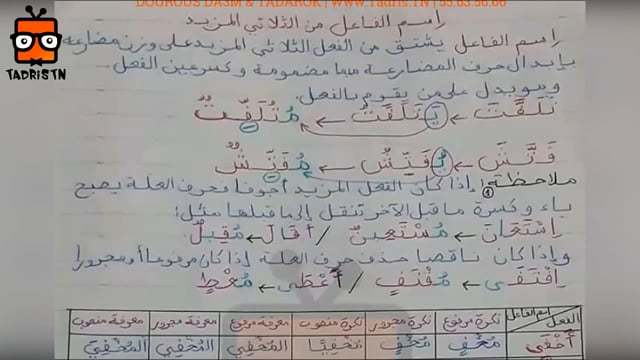 DOUROUS DASM & TADAROK | WWW.Tadris.TN | 55.63.56.66
TADRISTN
إسم الفاعل من الثلاثي المزيد
إسم الفاعل يشتق من الفعل الثلاثي المزيد على وزن مضارعه
بإبدال حرف المضارعة ميما مضمومة وكسر عين الفعل
ويدل على من يقوم بالفعل.
تَلَفَّتَ ← يَتَلَفَّتُ ← مُتَلَفِّتٌ
فَتَّشَ ← يُفَتِّشُ ← مُفَتِّشٌ
ملاحظة: إذا كان الفعل المزيد أجوفا فحرف العلة يصبح
ياء وكسرة ما قبل الآخر تنقل إلى ما قبلها مثل:
اِسْتَعَانَ ← مُسْتَعِينٌ / أَقَالَ ← مُقِيلٌ
وإذا كان ناقصا حذف حرف العلة إذا كان مرفوعا أو مجرورا
اِقْتَفَى ← مُقْتَفٍ / أَعْطَى ← مُعْطٍ
إسم الفاعل نكرة مرفوع نكرة مجرور نكرة منصوب معرفة مرفوع معرفة مجرور معرفة منصوب
الفعل
أَخْفَى مُخْفٍ مُخْفٍ مُخْفِيًا المُخْفِي المُخْفِي المُخْفِيَ